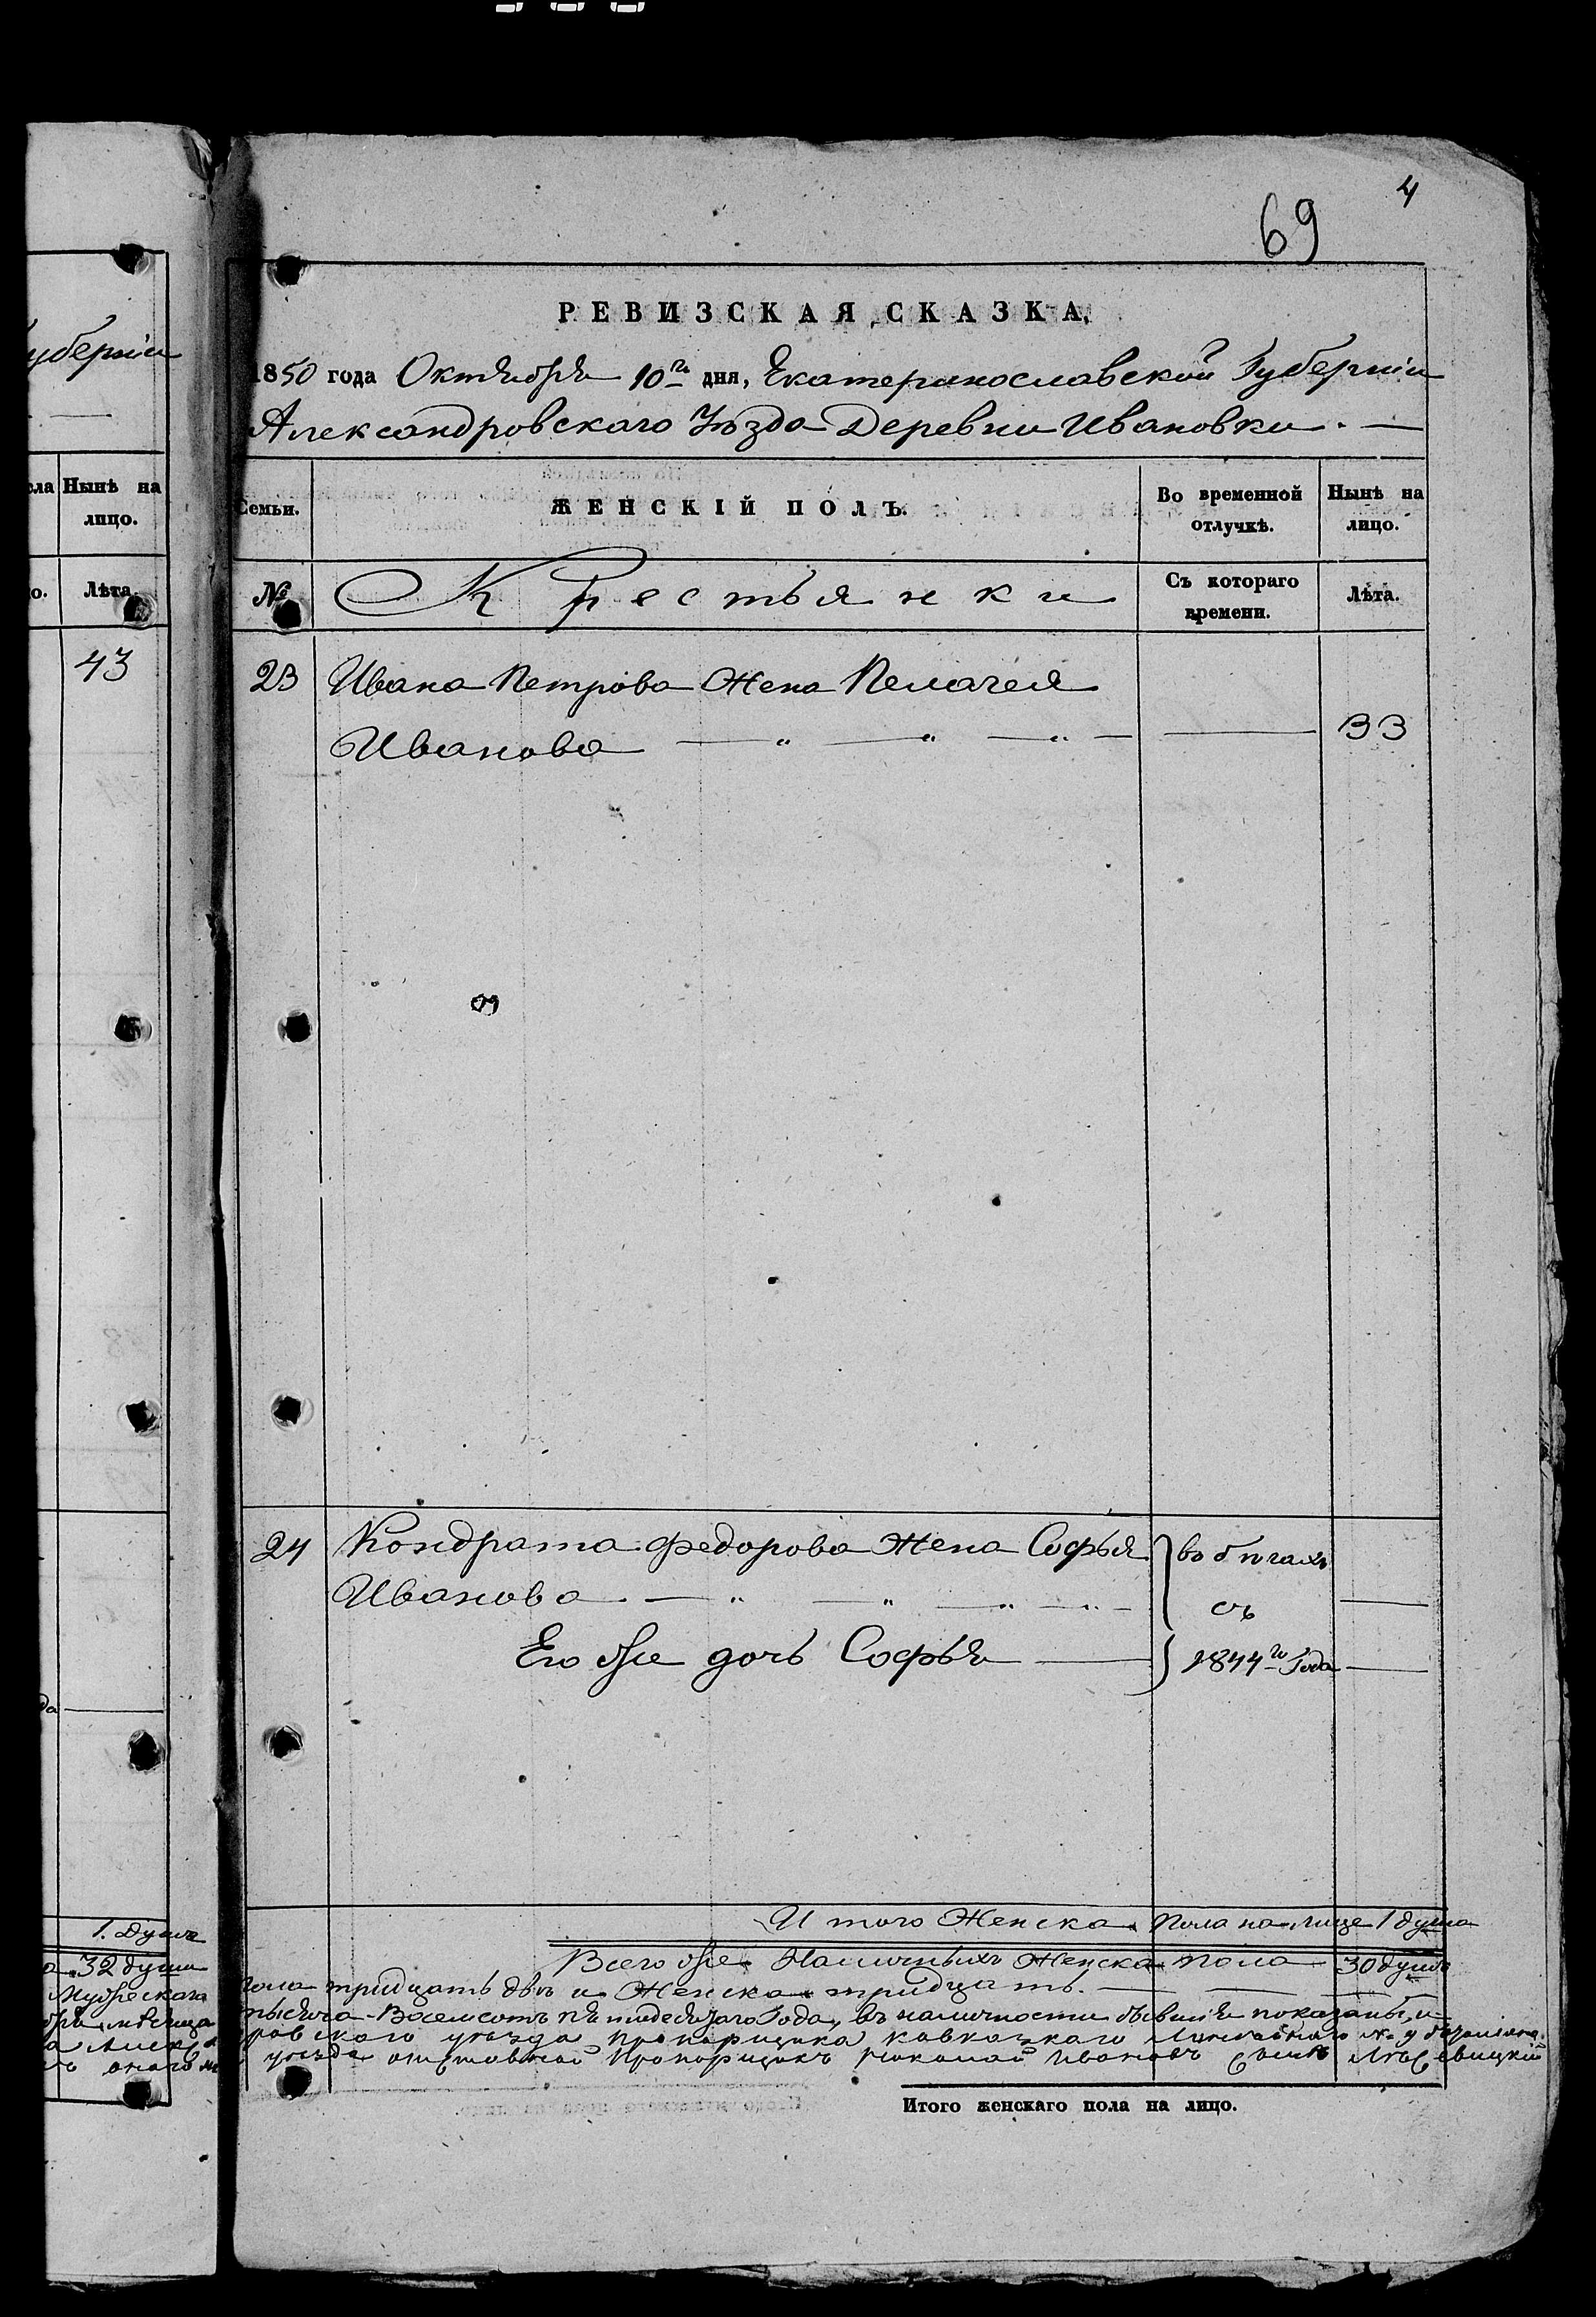 губерніи
сла Нынѣ на
лицо.
о. Лѣта.
43
да
1. душа
а 32 души
Мужеска
мѣсяца
онаго
4
69
РЕВИЗСКАЯ СКАЗКА,
1850 года Октября 10го дня, Екатеринославской Губерніи
Александровскаго Уѣзда Деревни Ивановки. —
Семьи. ЖЕНСКІЙ ПОЛЪ. Во временной отлучкѣ. Нынѣ на лицо.
№ Крестьянки Съ котораго времени. Лѣта.
23 Ивана Петрова Жена Пелагея
Иванова — „ — „ — „ — — 33
24 Кондрата Федорова Жена Софья } въ бѣгахъ
Иванова — „ — „ — „ — „ — съ —
Его же дочь Софья — } 1844го Года —
И того Женска Пола на лице 1 душа
Всего же Наличныхъ Женска пола 30 душъ
пола тридцать двѣ и Женска тридцать. — — —
тысяча Восемсотъ пятидесятаго Года, въ наличности бывшія показаны, и
ровскаго уѣзда Прапорщика Кавказкаго Линейнаго
уѣзда отставной Прапорщикъ Николай Ивановъ сынъ
Итого женскаго пола на лицо.